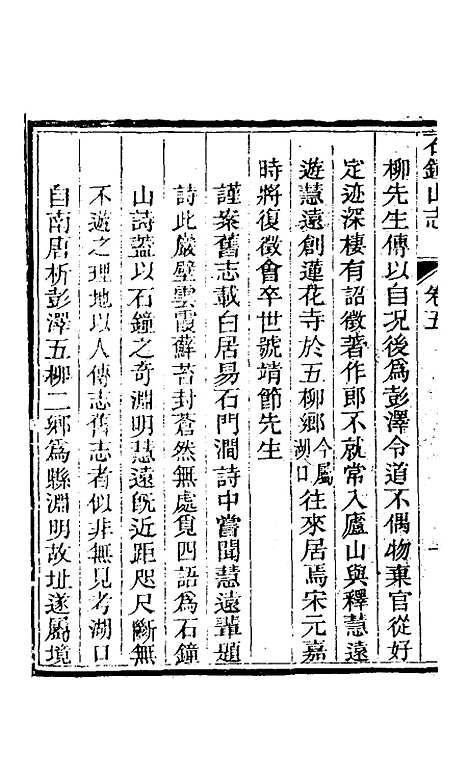 石鐘山志 卷五
柳先生傳以自況後為彭澤令道不偶物棄官從好
定迹深棲有詔徵著作郎不就常入廬山與釋慧遠
遊慧遠創蓮花寺於五柳鄉今屬湖口往來居焉宋元嘉
時將復徵會卒世號靖節先生
謹案舊志載白居易石門澗詩中嘗聞慧遠輩題
詩此巖壁雲霞蘚苔封蒼然無處覓四語為石鐘
山詩蓋以石鐘之奇淵明慧遠旣近距咫尺斷無
不遊之理地以人傳志舊志者似非無見考湖口
自南唐析彭澤五柳二鄉為縣淵明故址遂屬境